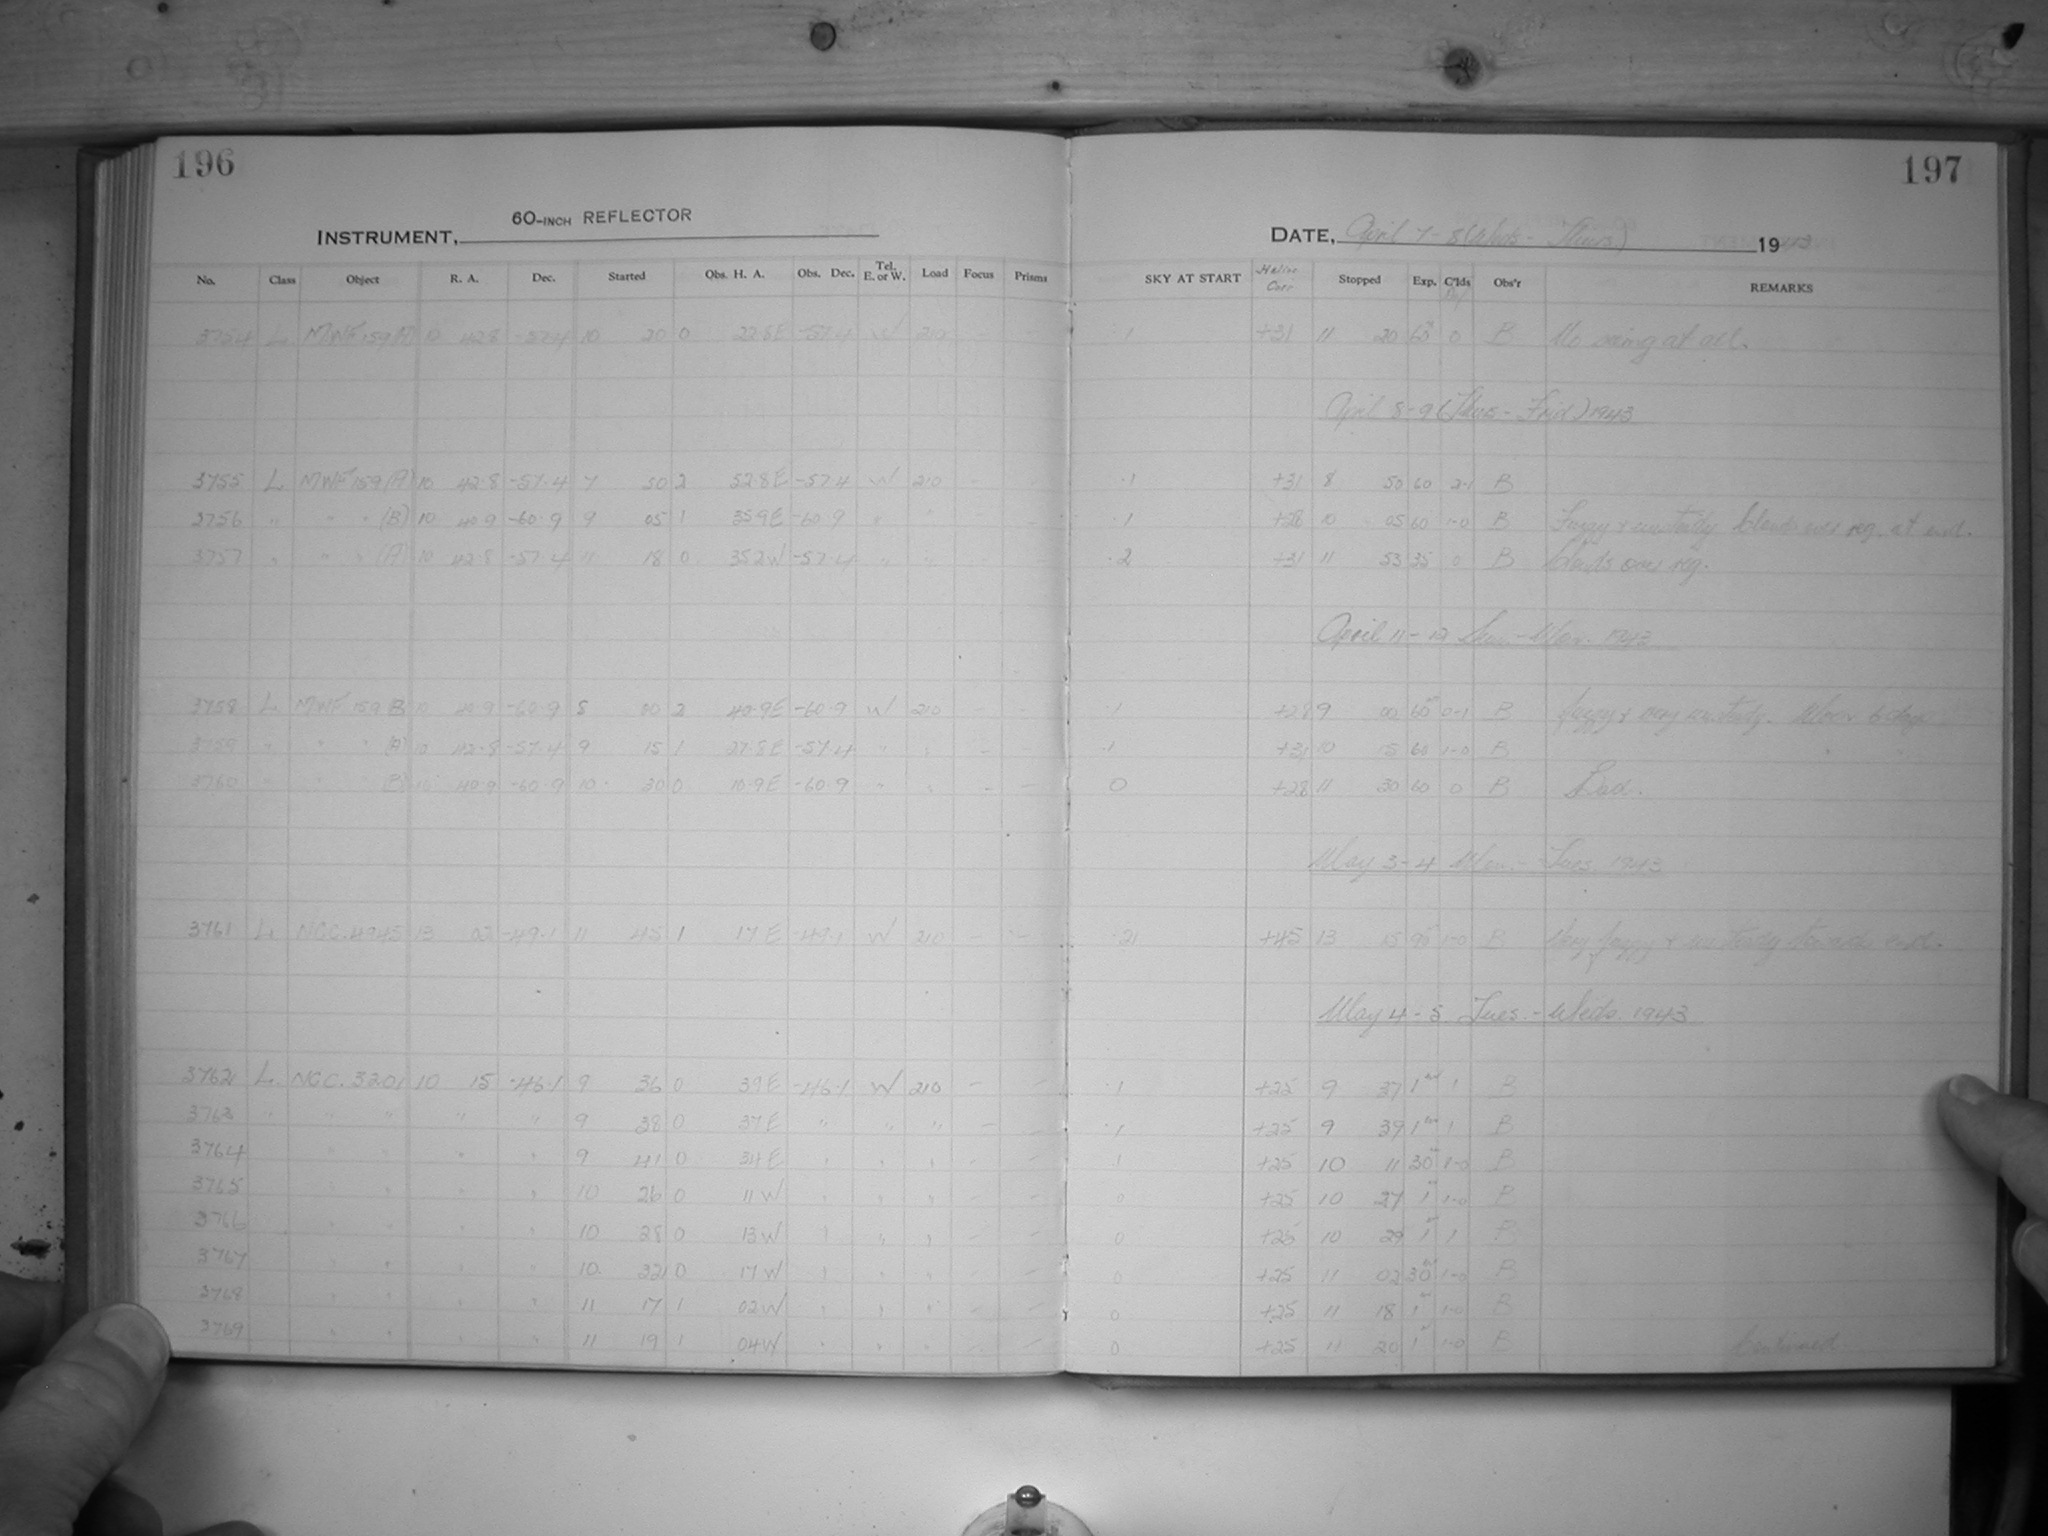 196
197
60-INCH REFLECTOR
INSTRUMENT,
DATE, April 7-8 (Weds - Thurs) 1943
No. Class Object R. A. Dec. Started Obs. H. A. Obs. Dec. Tel. E. or W. Load Focus Prisms SKY AT START Helio Corr Stopped Exp. C'lds Obs'r REMARKS
3754 L MWF 159 (A) 10 42.8 -57.4 10 20 0 22.8E -57.4 W 210 - - 1 +31 11 20 60 0 B No seeing at all.
April 8-9 (Thurs - Frid) 1943
3755 L MWF 159 (A) 10 42.8 -57.4 7 50 2 52.8E -57.4 W 210 - - .1 +31 8 50 60 2-1 B
3756 " " " (B) 10 40.9 -60.9 9 05 1 35.9E -60.9 " " - - .1 +28 10 05 60 1-0 B Fuzzy & unsteady Clouds over reg. at end.
3757 " " " (A) 10 42.8 -57.4 11 18 0 35.2W -57.4 " " - - .2 +31 11 53 35 0 B Clouds over reg.
April 11-12 Sun.-Mon. 1943
3758 L MWF 159 B 10 40.9 -60.9 8 00 2 40.9E -60.9 W 210 - - .1 +28 9 00 60 0-1 B fuzzy & very unsteady. Moon 6 days
3759 " " " (A) 10 42.8 -57.4 9 15 1 27.8E -57.4 " " - - .1 +31 10 15 60 1-0 B " "
3760 " " (B) 10 40.9 -60.9 10 30 0 10.9E -60.9 " " - - 0 +28 11 30 60 0 B Bad.
May 3-4 Mon. - Tues. 1943
3761 L NGC. 4945 13 02 -49.1 11 45 1 17E -49.1 W 210 - - .21 +45 13 15 90 1-0 B Very fuzzy & unsteady towards end.
May 4-5 Tues. - Weds. 1943
3762 L NGC. 3201 10 15 -46.1 9 36 0 39E -46.1 W 210 - - .1 +25 9 37 1 1 B
3763 " " " " " 9 38 0 37E " " " - - .1 +25 9 39 1 1 B
3764 " " " " 9 41 0 34E " " " - - 1 +25 10 11 30 1-0 B
3765 " " " " 10 26 0 11W " " " - - 0 +25 10 27 1 1-0 B
3766 " " " " 10 28 0 13W " " " - - 0 +25 10 29 1 1 B
3767 " " " " 10 32 0 17W " " " - - 0 +25 11 02 30 1-0 B
3768 " " " " 11 17 1 02W " " " - - 0 +25 11 18 1 1-0 B
3769 " " " " 11 19 1 04W " " " - - 0 +25 11 20 1 1-0 B Continued